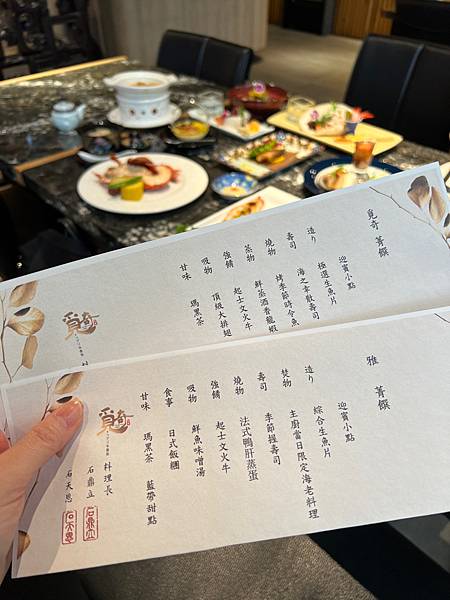 覓奇 菁饌
迎賓小點
造り 極選生魚片
壽司 海之幸散壽司
燒物 烤季節時令魚
蒸物 鮮蒸酒香龍蝦
強餚 起士文火牛
吸物 頂級大排翅
甘味 瑪黑茶
覓奇
雅 菁饌
迎賓小點
造り 綜合生魚片
焚物 主廚當日限定海老料理
壽司 季節握壽司
燒物 法式鴨肝蒸蛋
強餚 起士文火牛
吸物 鮮魚味噌湯
食事 日式飯糰
甘味 瑪黑茶 藍帶甜點
覓奇
料理長
石鼎立
石天恩
石鼎立
石天恩